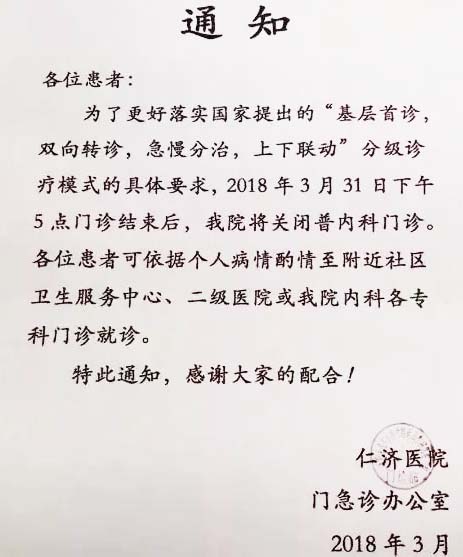 通知
各位患者：
为了更好落实国家提出的“基层首诊，
双向转诊，急慢分治，上下联动”分级诊
疗模式的具体要求，2018 年 3 月 31 日下午
5 点门诊结束后，我院将关闭普内科门诊。
各位患者可依据个人病情酌情至附近社区
卫生服务中心、二级医院或我院内科各专
科门诊就诊。
特此通知，感谢大家的配合！
仁济医院
门急诊办公室
2018 年 3 月